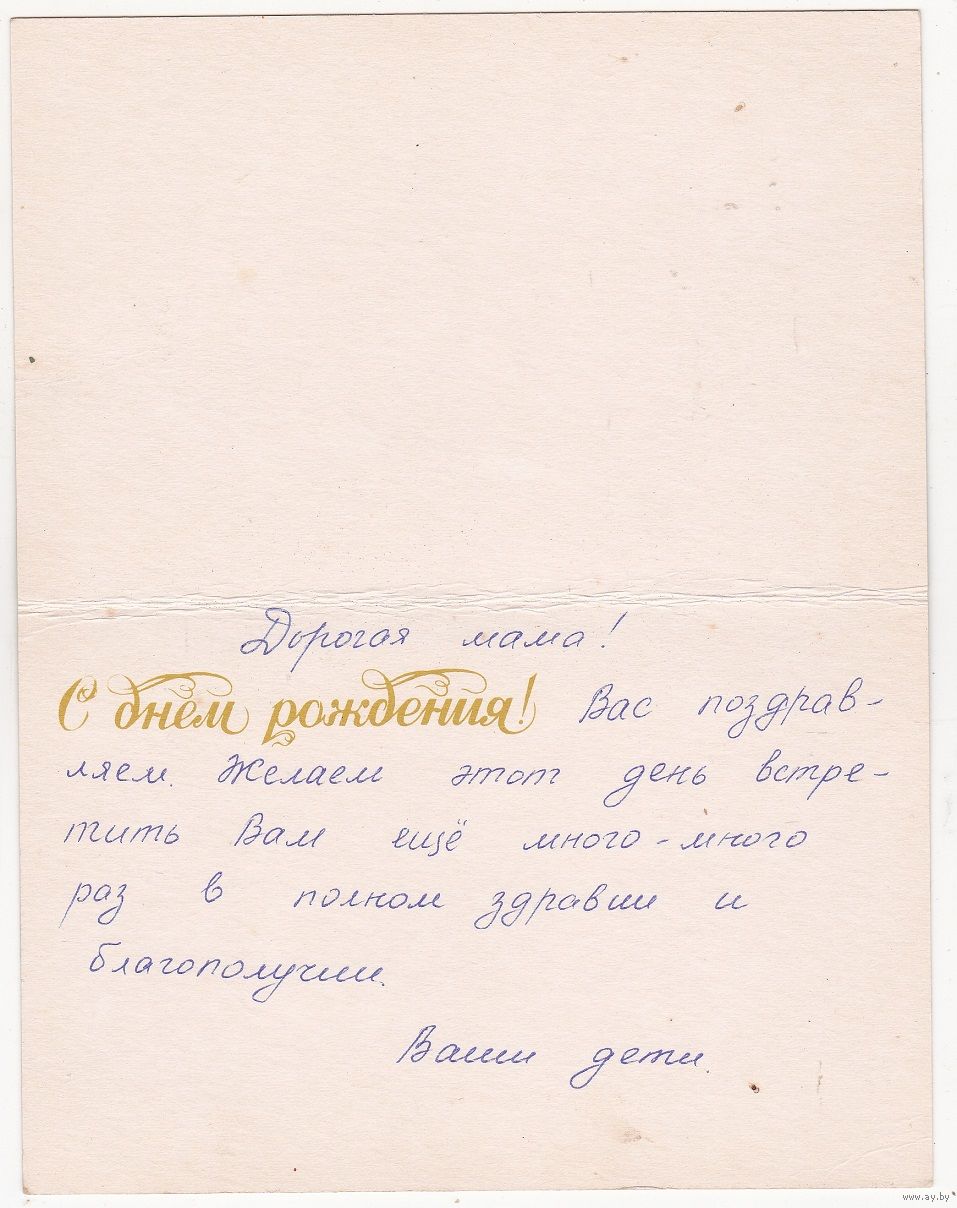 Дорогая мама!
С днем рождения! Вас поздрав-
ляем. Желаем этот день встре-
тить Вам ещё много-много
раз в полном здравии и
благополучии.
Ваши дети.
www.ay.by